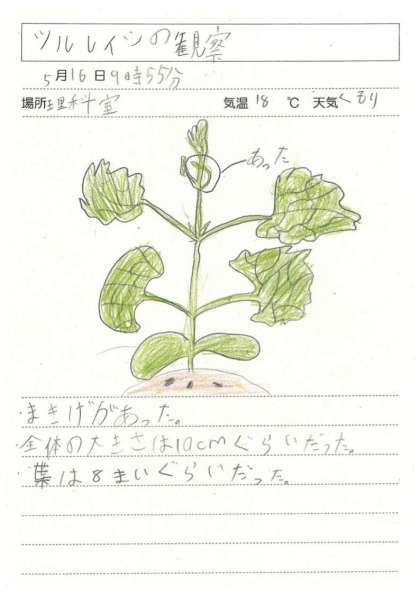 ツルレイシの観察
5月16日9時55分
場所 理科室 気温 18 ℃ 天気 くもり
あった
まきげがあった。
全体の大きさは10cmぐらいだった。
葉は8まいぐらいだった。